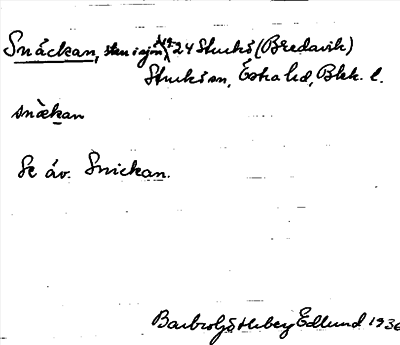 Snäckan, sten i sjön 24 Sturkö (Bredavik)
Sturkö sn, Östra hd, Blek. l.
snækan
Se äv. Snickan.
Edlund 1936